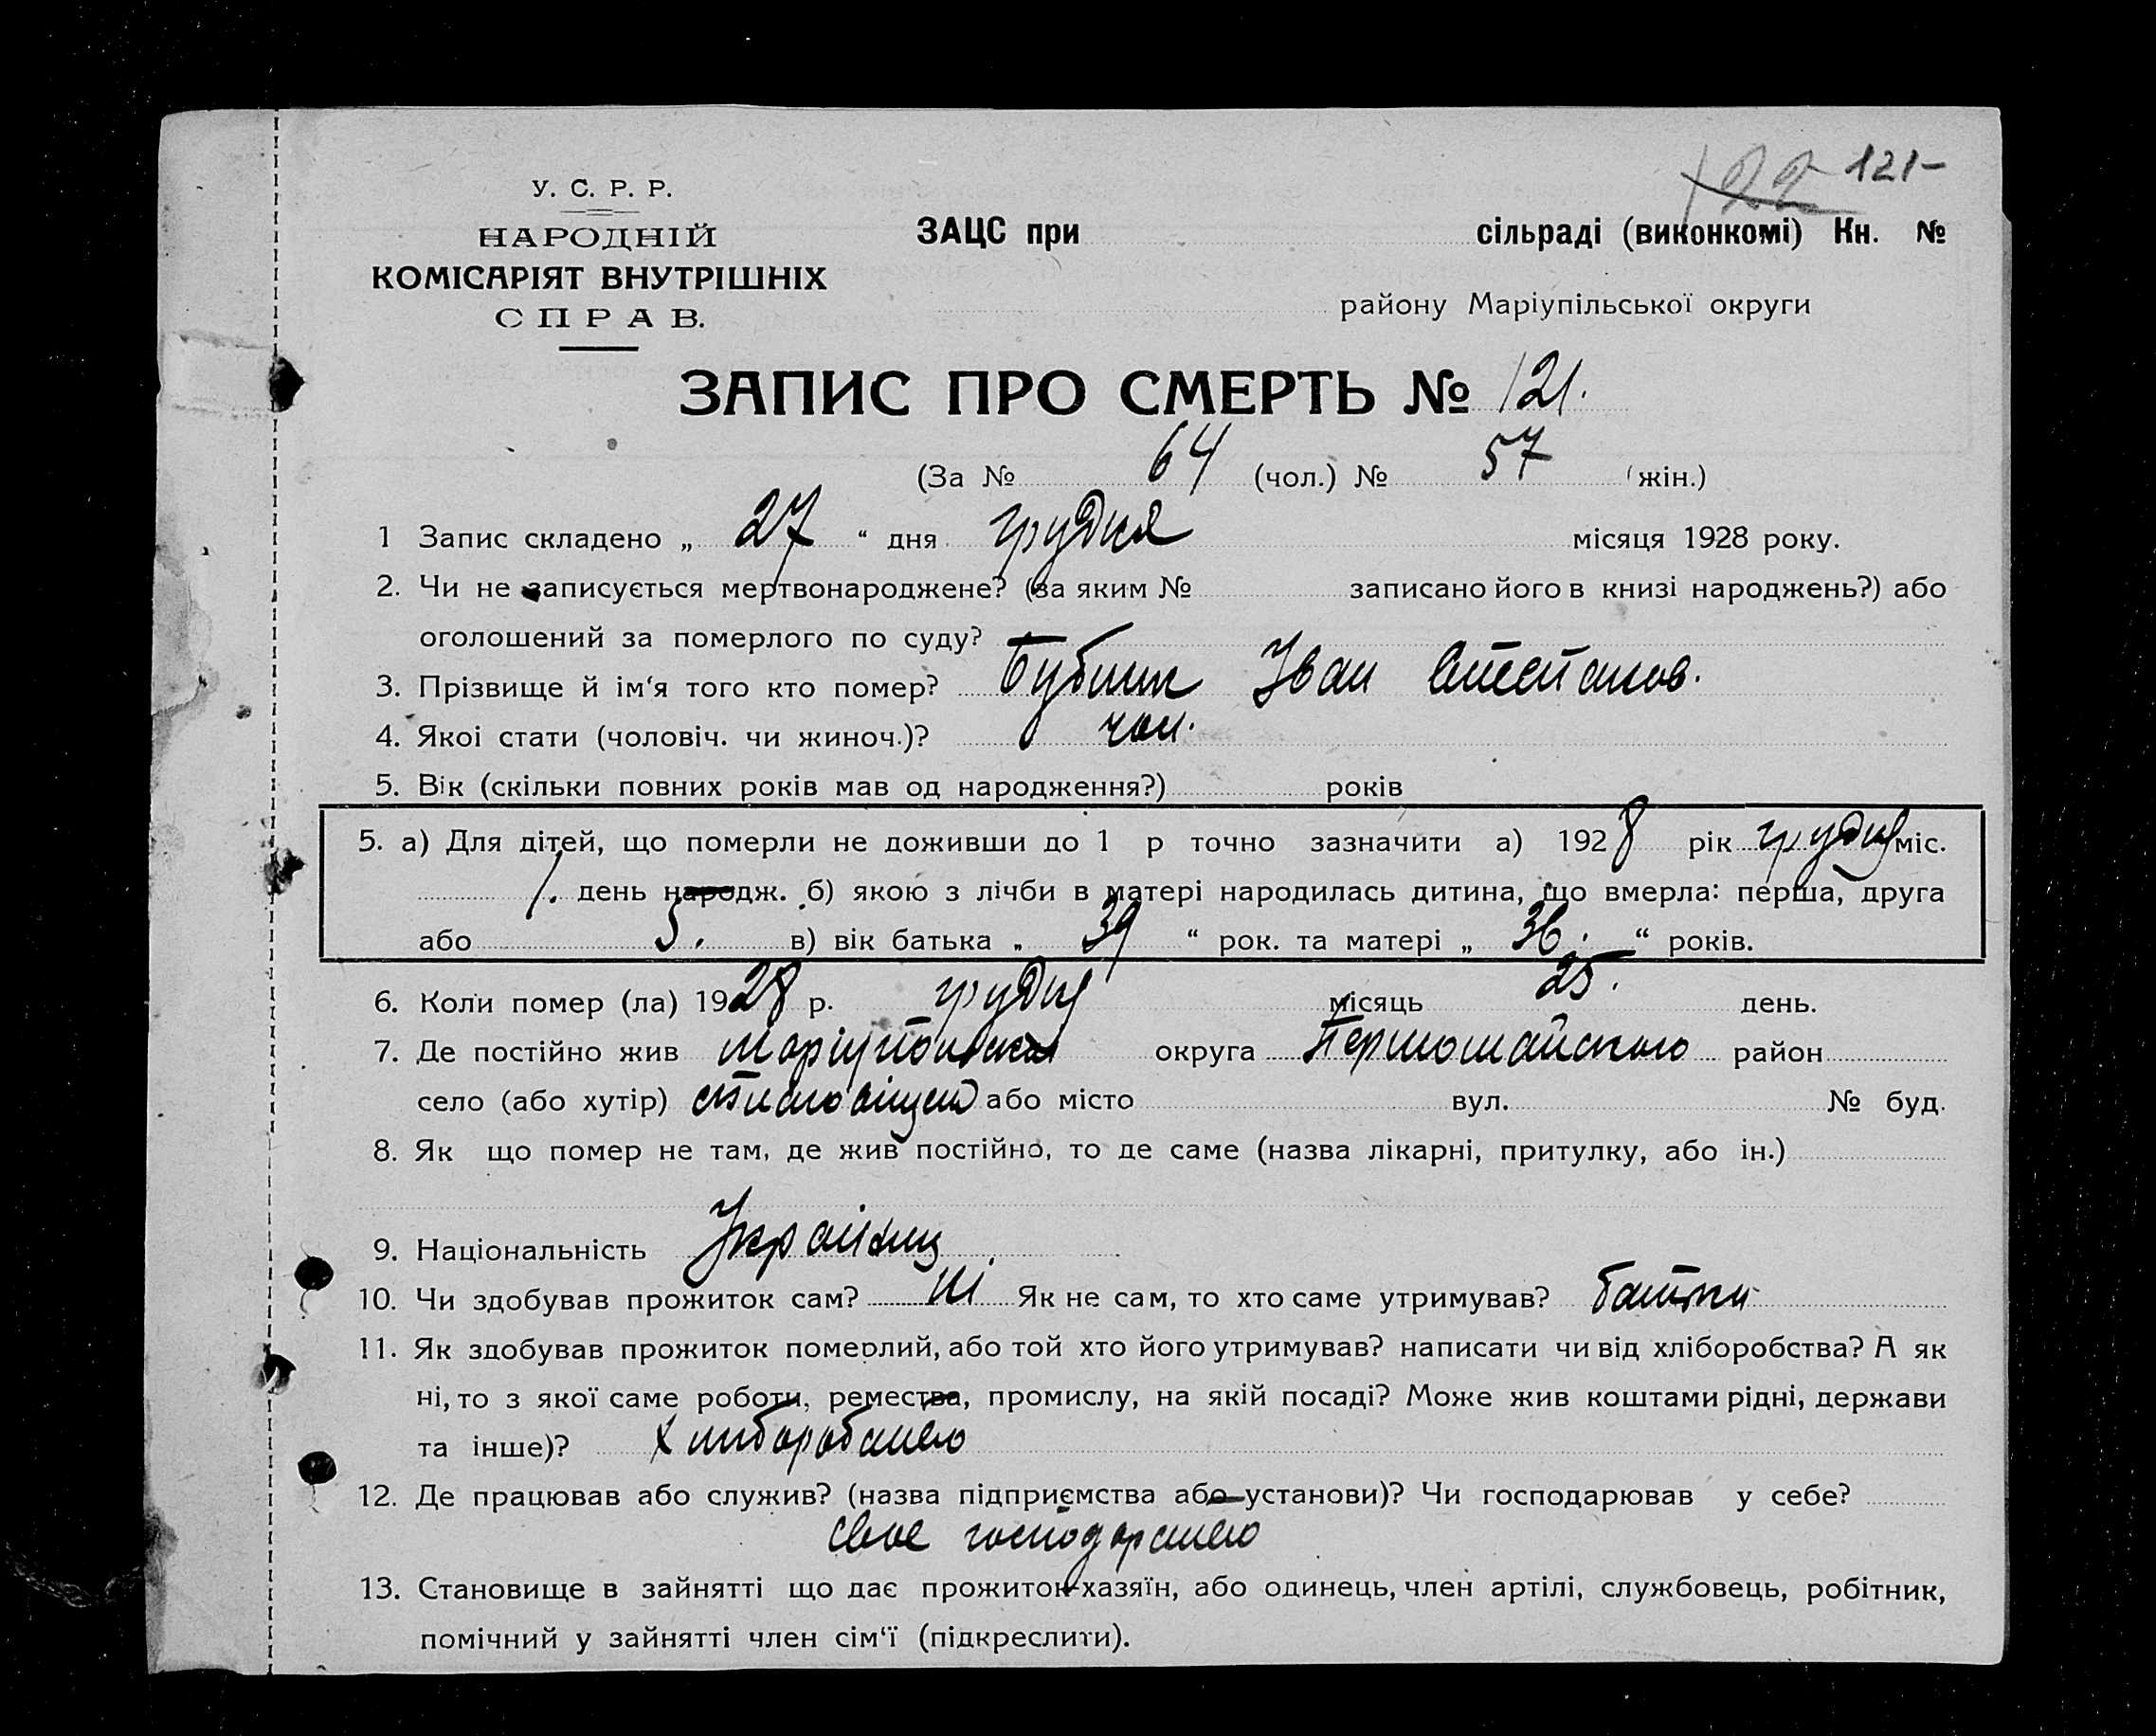 122 121-
У. С. Р. Р.
НАРОДНІЙ
КОМІСАРІЯТ ВНУТРІШНІХ
СПРАВ.
ЗАЦС при сільраді (виконкомі) Кн. №
району Маріупільської округи
ЗАПИС ПРО СМЕРТЬ № 121.
(За № 64 (чол.) № 57 (жін.)
1 Запис складено „ 27 “ дня грудня місяця 1928 року.
2. Чи не записується мертвонароджене? (за яким № записано його в книзі народжень?) або
оголошений за померлого по суду?
3. Прізвище й ім‘я того кто помер? Іван Степанов.
4. Якоі стати (чоловіч. чи жиноч.)? чол.
5. Вік (скільки повних років мав од народження?) років
5. а) Для дітей, що померли не доживши до 1 р точно зазначити а) 1928 рік грудня міс.
1. день народж. б) якою з лічби в матері народилась дитина, що вмерла: перша, друга
або 5. в) вік батька „ 39 “ рок. та матері „ 36. “ років.
6. Коли помер (ла) 1928 р. грудня місяць 25. день.
7. Де постійно жив округа Першомайського район
село (або хутір) або місто вул. № буд.
8. Як що помер не там, де жив постійно, то де саме (назва лікарні, притулку, або ін.)
9. Національність Українец
10. Чи здобував прожиток сам? ні Як не сам, то хто саме утримував? батьки
11. Як здобував прожиток померлий, або той хто його утримував? написати чи від хліборобства? А як
ні, то з якої саме роботи,ремества, промислу, на якій посаді? Може жив коштами рідні, держави
та інше)?
12. Де працював або служив? (назва підприємства або установи)? Чи господарював у себе?
свое господарство
13. Становище в зайнятті що дає прожиток-хазяїн, або одинець, член артілі, службовець, робітник,
помічний у зайнятті член сім‘ї (підкреслити).